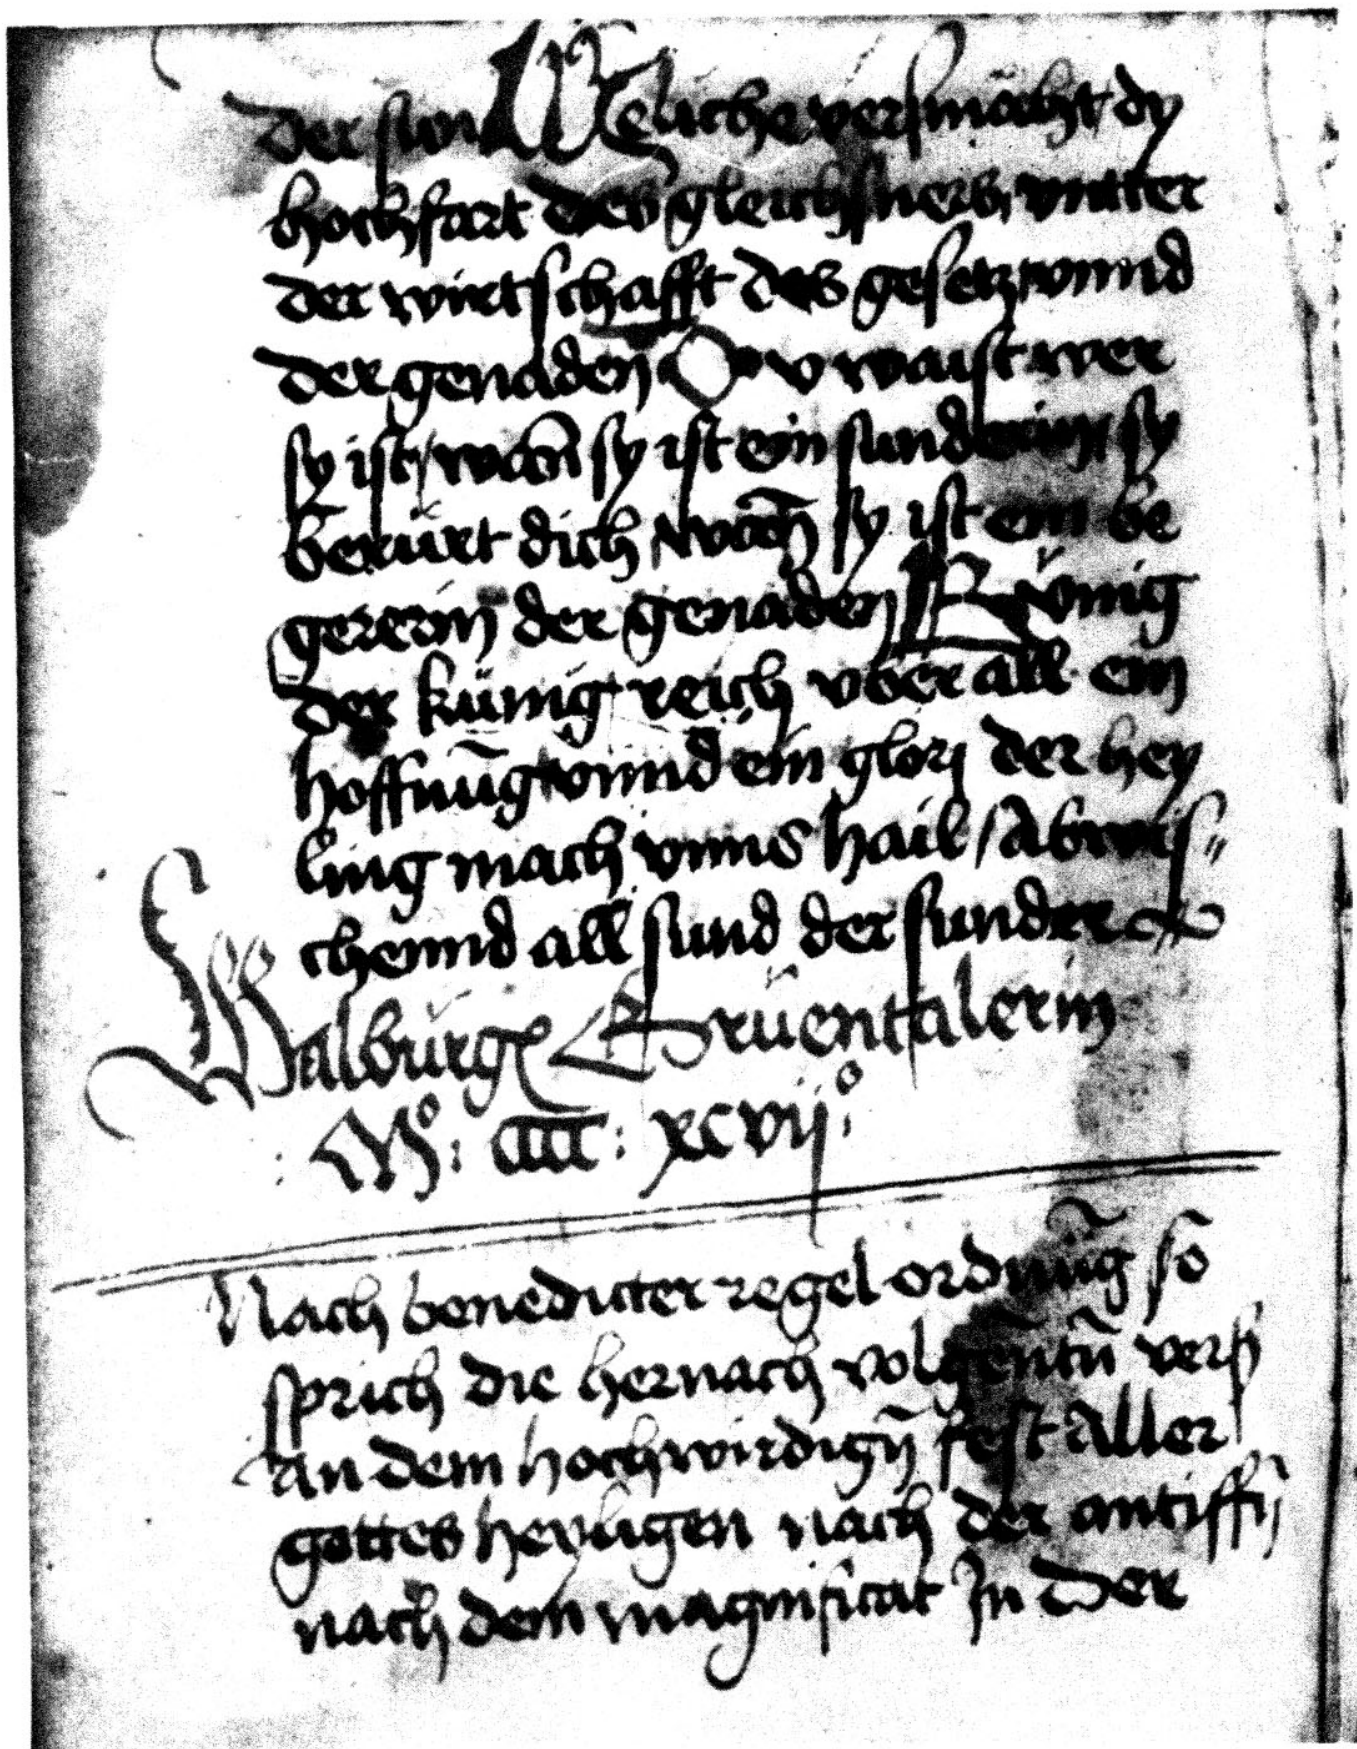 der sun Weliche versmächt dy
hochfart des gleichsners, vntter
der wirtschafft des gesetz vnnd
der genaden Du waist wer
sy ist, wan̄ sy ist ein sunderin, sy
berürt dich, wan̄ sy ist ein be
gererin der genaden Künig
der künig reich vber all ein
hoffnūg vnnd ein glorj der hey
ling mach vnns hail / Abwis„
chennd all sund der sunder
Walburg Grüentalerin
: Mº : CCCC : xcvijº
Nach benedicter regel ordnūg so
sprich die hernach volgēntn̄ vers
an dem hochwirdign̄ fest aller
gottes heyligen nach der antiffn̄
nach dem magnificat In der